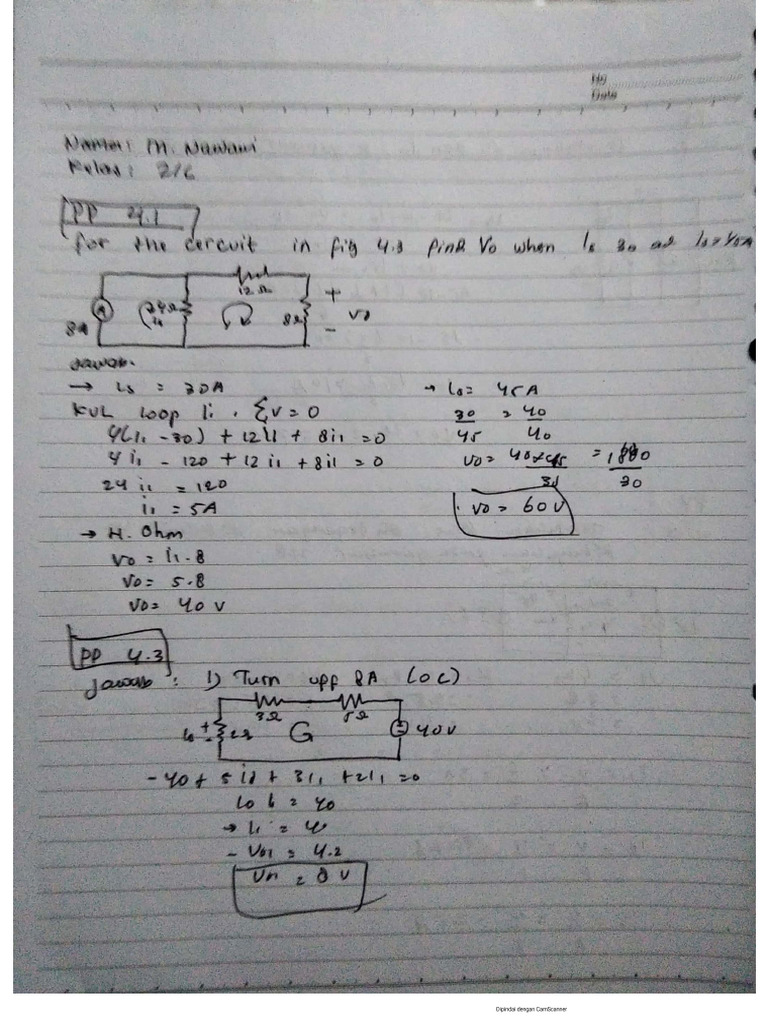 No
Date
Nama: M. Nawawi
Kelas: 2/6
PP 4.1
for the cercuit in fig 4.3 find Vo when Is 30 as Is = 45A
12Ω
8Ω
+
-
Vo
8A
Jawab.
→ Is = 30A
KVL Loop I1. ΣV=0
4(I1 -30) + 12I1 + 8i1 =0
4i1 - 120 + 12 i1 + 8i1 = 0
24 i1 = 120
i1 = 5A
→ H. Ohm
Vo = i1 . 8
Vo = 5.8
Vo = 40 V
→ Is = 45A
30 = 40
45 40
Vo = 40x45 = 1800
30 30
Vo = 60V
PP 4.3
Jawab : 1) Turn upp 8A (OC)
3Ω
5Ω
+
-
2Ω
40V
- 40 + 5i1 + 3I1 + 2I1 =0
= 40
→ I1 = 4
- Vo1 = 4.2
= 8 V
Dipindai dengan CamScanner